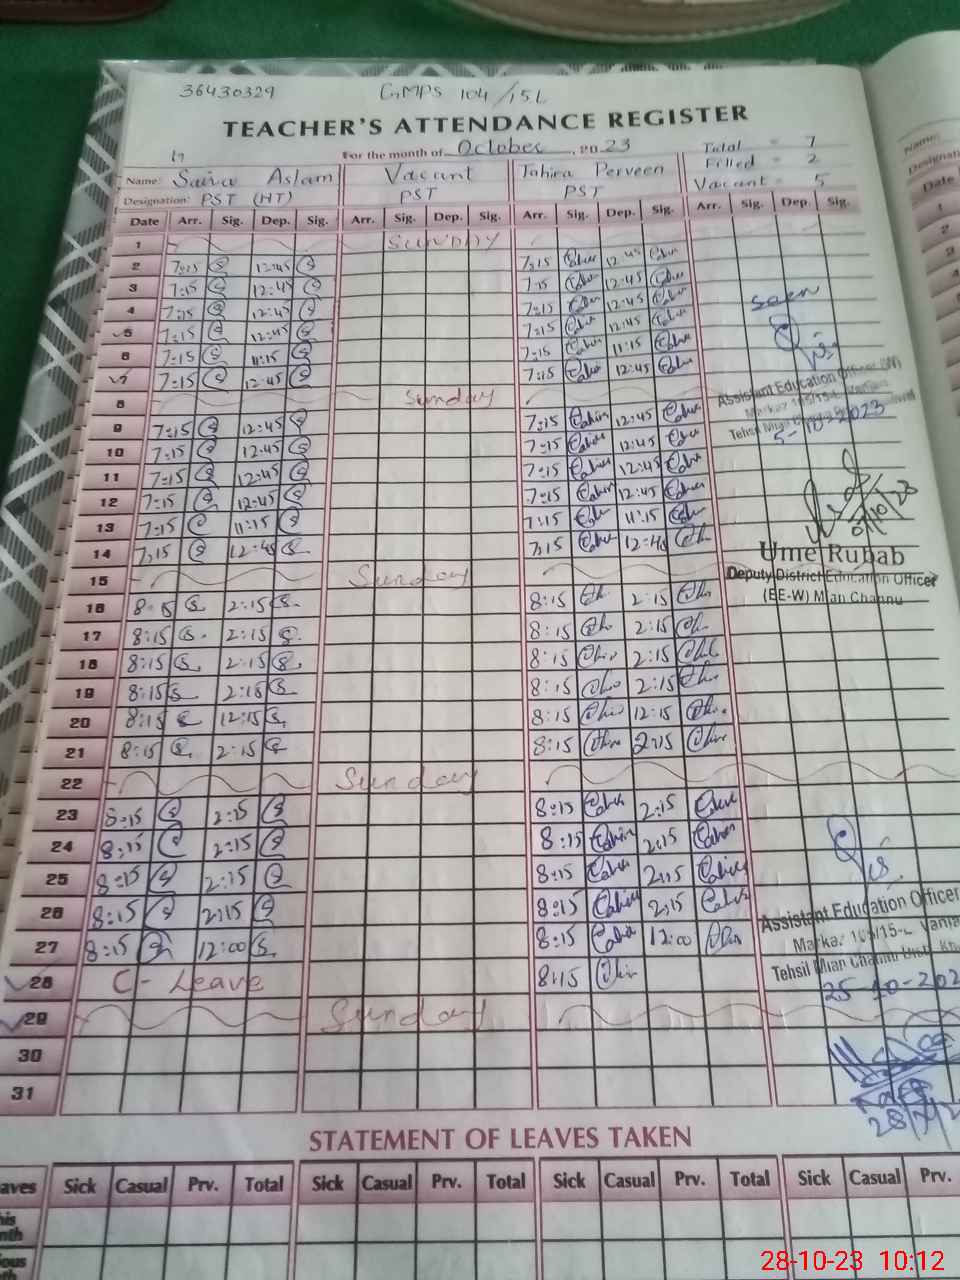 36430329 GMPS 104/15L
TEACHER'S ATTENDANCE REGISTER
For the month of October, 2023
Total = 7
Filled = 2
Vacant = 5
Name: Saira Aslam Vacant Tahira Perveen
Designation: PST (HT) PST PST
Date Arr. Sig. Dep. Sig. Arr. Sig. Dep. Sig. Arr. Sig. Dep. Sig. Arr. Sig. Dep. Sig.
1 Sunday
2 7:15 12:45 7:15 12:45
3 7:15 12:45 7:15 12:45
4 7:15 12:45 7:15 12:45
5 7:15 12:45 7:15 12:45
6 7:15 11:15 7:15 11:15
7 7:15 12:45 7:15 12:45
8 Sunday
9 7:15 12:45 7:15 12:45
10 7:15 12:45 7:15 12:45
11 7:15 12:45 7:15 12:45
12 7:15 12:45 7:15 12:45
13 7:15 11:15 7:15 11:15
14 7:15 12:45 7:15 12:45
15 Sunday
16 8:15 2:15 8:15 2:15
17 8:15 2:15 8:15 2:15
18 8:15 2:15 8:15 2:15
19 8:15 2:15 8:15 2:15
20 8:15 12:15 8:15 12:15
21 8:15 2:15 8:15 2:15
22 Sunday
23 8:15 2:15 8:15 2:15
24 8:15 2:15 8:15 2:15
25 8:15 2:15 8:15 2:15
26 8:15 2:15 8:15 2:15
27 8:15 12:00 8:15 12:00
28 C- Leave 8:15
29 Sunday
30
31
Seen
Assistant Education Officer (W)
Marka 105/15-L
Tehsil Mian Channu
5-10-2023
Ume Rubab
Deputy District Education Officer
(EE-W) Mian Channu
Assistant Education Officer
Marka 105/15-L
Tehsil Mian Channu Dist.
25-10-202
STATEMENT OF LEAVES TAKEN
aves Sick Casual Prv. Total Sick Casual Prv. Total Sick Casual Prv. Total Sick Casual Prv.
his
nth
ious
Name:
Date
1
2
3
4
28-10-23 10:12